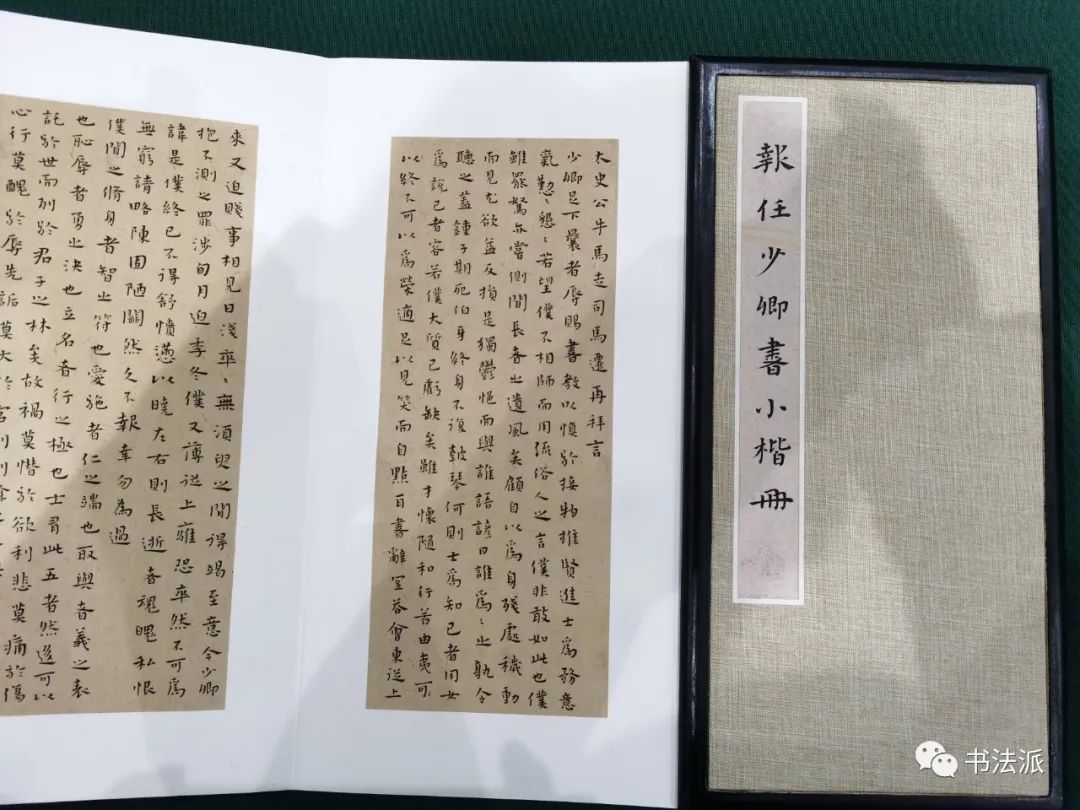 報任少卿書小楷冊
太史公牛馬走司馬遷再拜言
少卿足下曩者辱賜書教以慎於接物推賢進士爲務意
氣懃〻懇〻若望僕不相師而用流俗人之言僕非敢如此也僕
雖罷駑亦嘗側聞長者之遺風矣顧自以爲身殘處穢動
而見尤欲益反損是獨鬱悒而與誰語諺曰誰爲〻之孰令
聽之蓋鍾子期死伯牙終身不復鼓琴何則士爲知己者用女
爲說己者容若僕大質已虧缺矣雖才懷隨和行若由夷可
以終不可以爲榮適足以見笑而自點耳書辭宜荅會東從上
來又迫賤事相見日淺卒〻無須臾之間得竭至意今少卿
抱不測之罪涉旬月迫季冬僕又薄從上雍恐卒然不可爲
諱是僕終已不得舒憤懣以曉左右則長逝者魂魄私恨
無窮請略陳固陋闕然久不報幸勿為過
僕聞之脩身者智之符也愛施者仁之端也取與者義之表
也恥辱者勇之決也立名者行之極也士有此五者然後可以
託於世而列於君子之林矣故禍莫憯於欲利悲莫痛於傷
心行莫醜於辱先詬莫大於宮刑刑
书法派